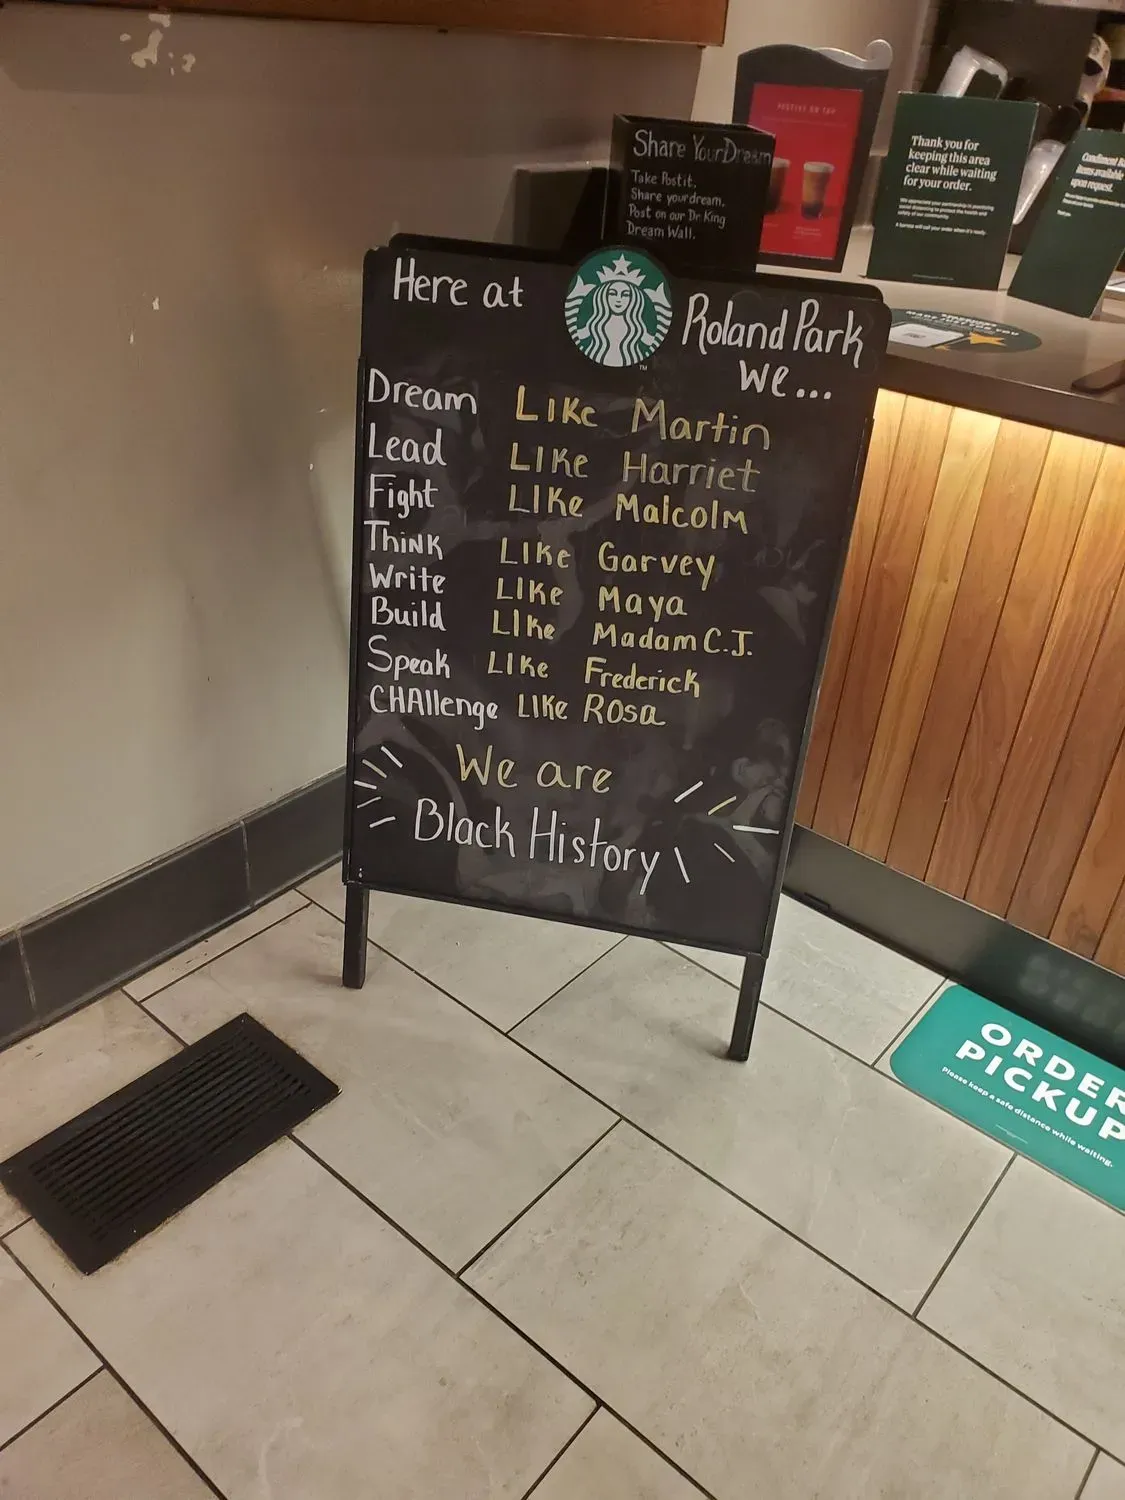 Share Your Dream
Take Postit.
Share your dream.
Post on our Dr King
Dream Wall.
FESTIVE ON TAP
Thank you for
keeping this area
clear while waiting
for your order.
Condiment
items available
upon request.
Here at Roland Park
we...
Dream Like Martin
Lead Like Harriet
Fight Like Malcolm
Think Like Garvey
Write Like Maya
Build Like Madam C.J.
Speak Like Frederick
CHAllenge Like Rosa
We are
Black History
TM
ORDER
PICKUP
Please keep a safe distance while waiting.